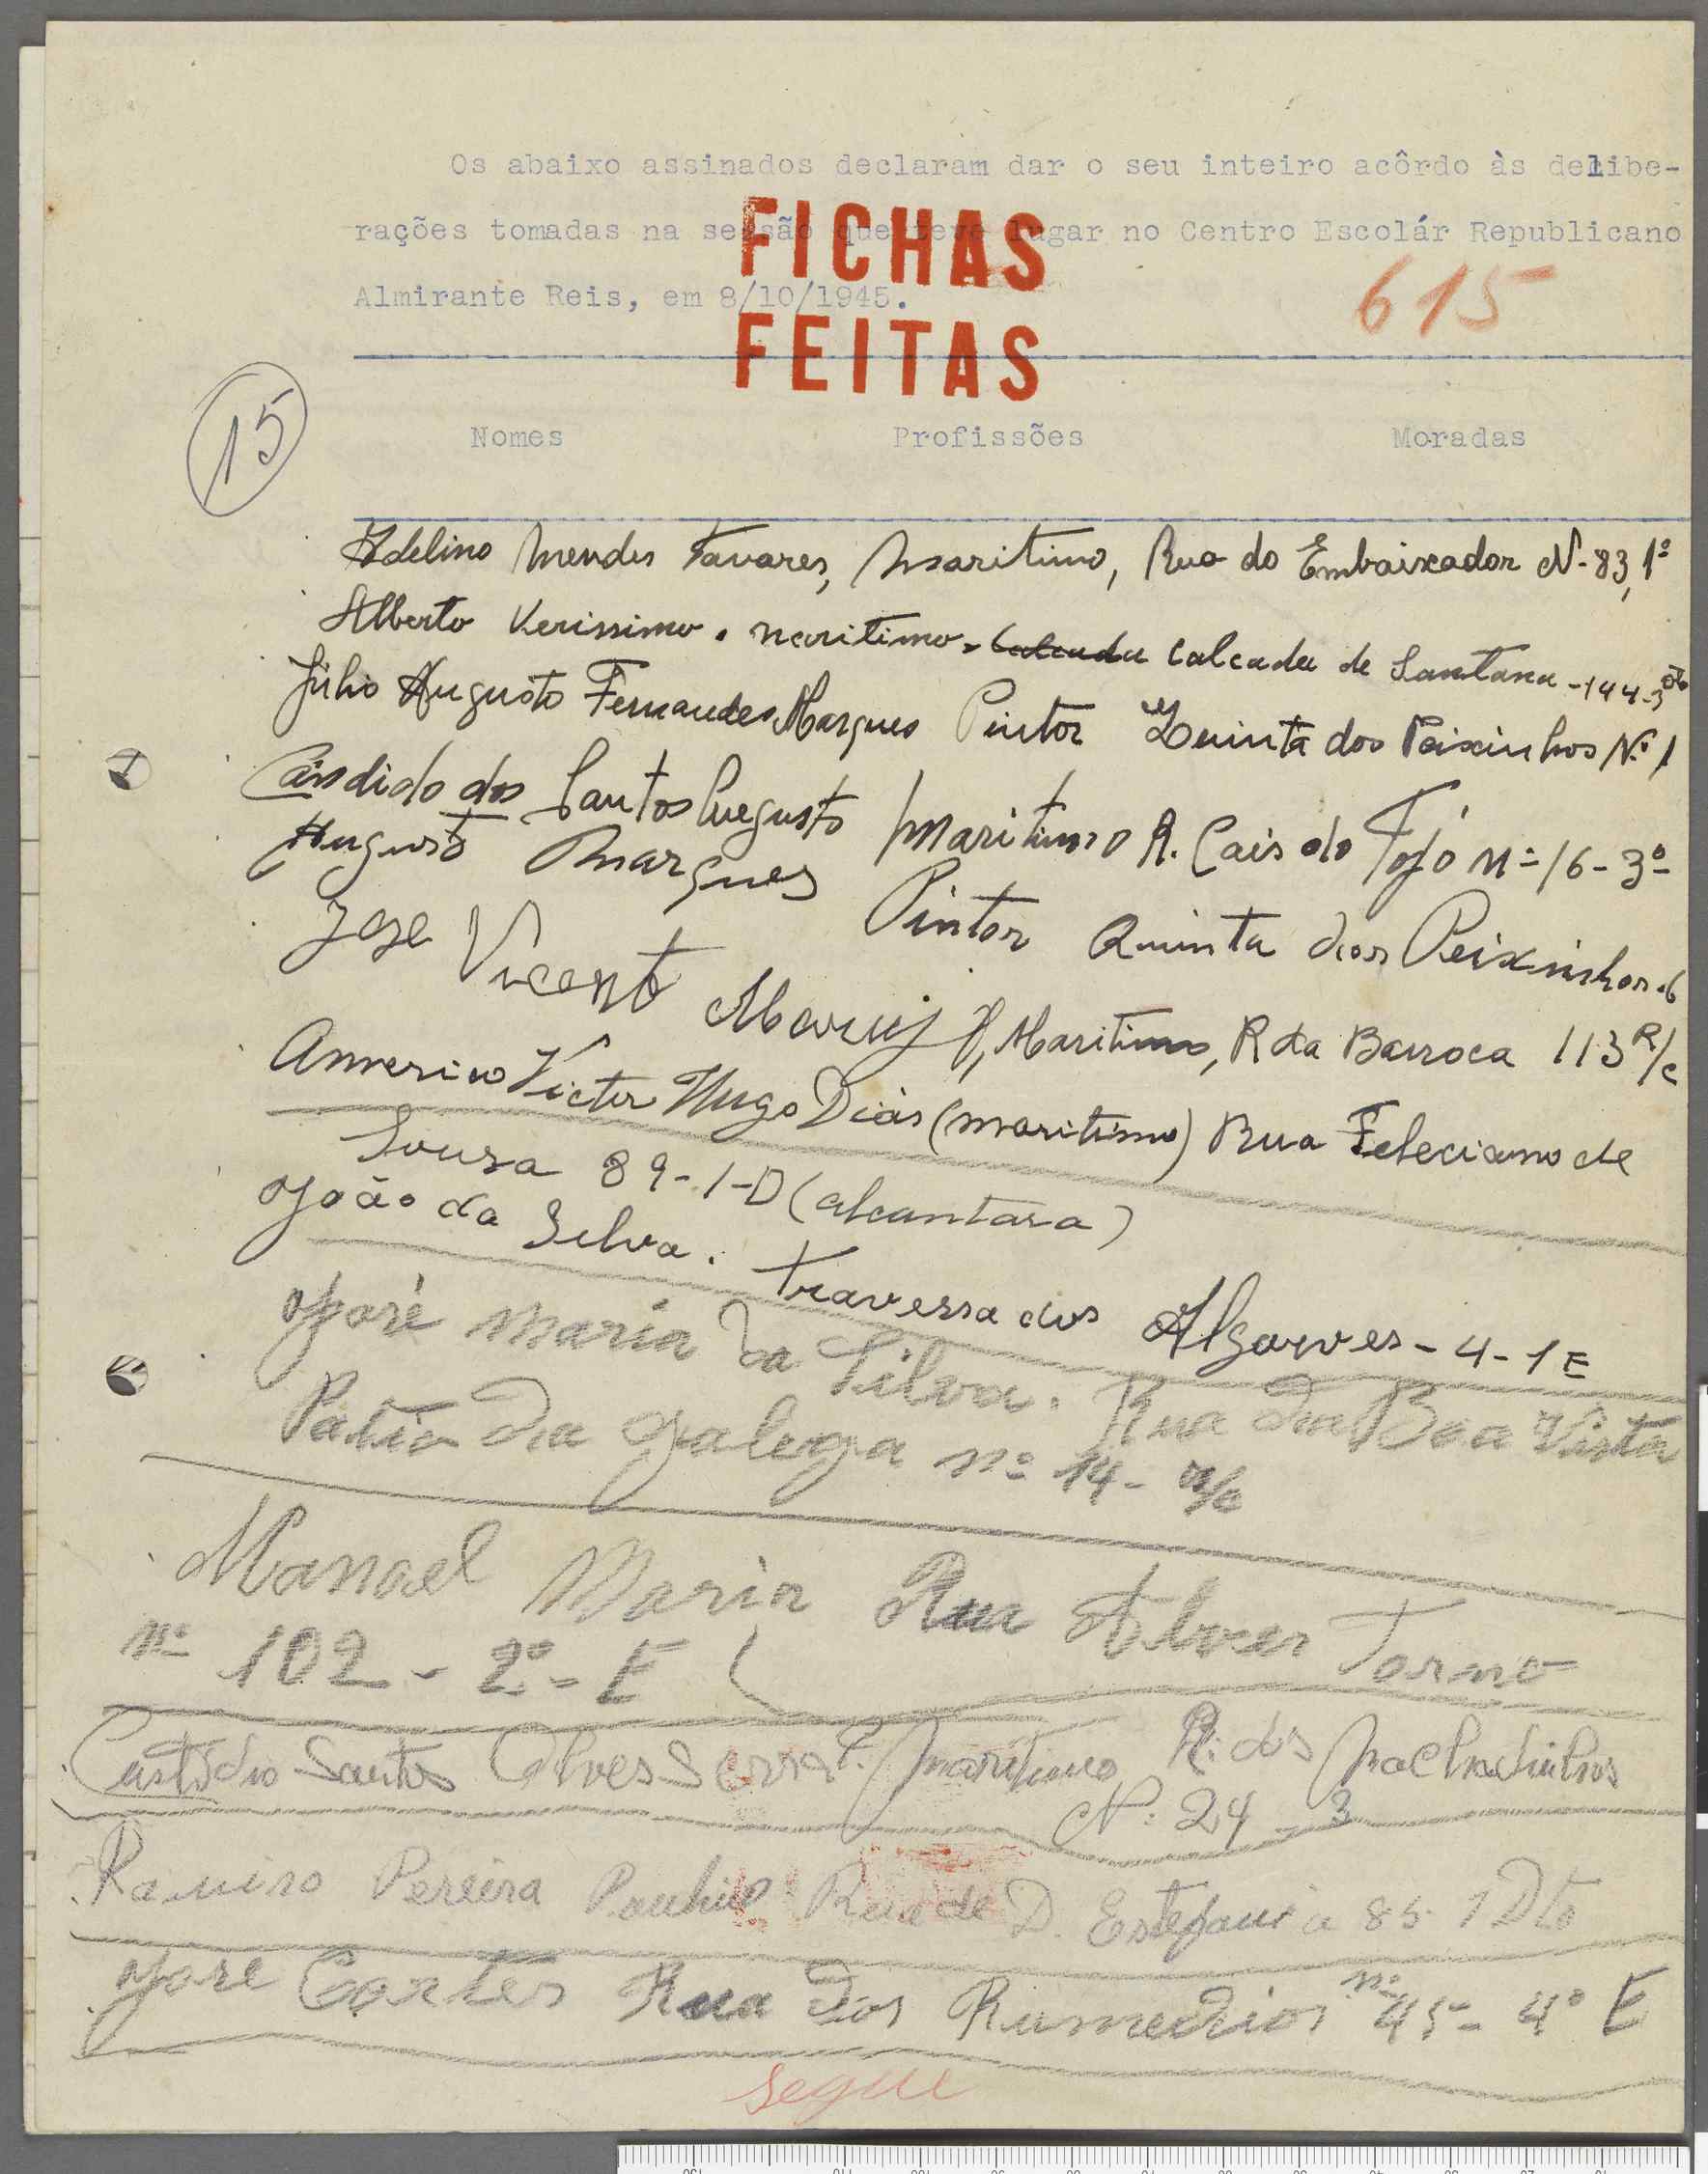 Os abaixo assinados declaram dar o seu inteiro acôrdo às delibe-
rações tomadas na sessão que teve lugar no Centro Escolár Republicano
Almirante Reis, em 8/10/1945.
FICHAS
FEITAS
615
15
Nomes Profissões Moradas
Adelino Mendes Tavares, Maritimo, Rua do Embaixador N-83, 1º
Alberto Verissimo. maritimo. Calcada Calcada de Santana-144-3º
Júlio Augusto Fernandes Marques Pintor Quinta dos Peixinhos Nº 1
Cândido dos Santos Augusto Maritimo R. Cais do Tojó nº 16-3º
Augusto Marques Pintor Quinta dos Peixinhos 6
Jose Vicent Maritimo, R da Barroca 113 R/c
Americo Victor Hugo Dias (maritimo) Rua Feleciano de
Sousa 89-1-D (alcantara)
João da Silva. Travessa dos Algarves-4-1E
José Maria da Silva. Rua da Boa Vista
Patio da galega nº 14- r/c
Manael Maria Rua Alves Torno
nº 102-2º-E
Custódio Santos Alves Serrat. maritimo R. dos Machadinhos
Nº 24-3
Ramiro Pereira Rua de D. Estefania 85. 1 Dto
José Cortes Rua dos Rumedios nº 45-4º E
segue